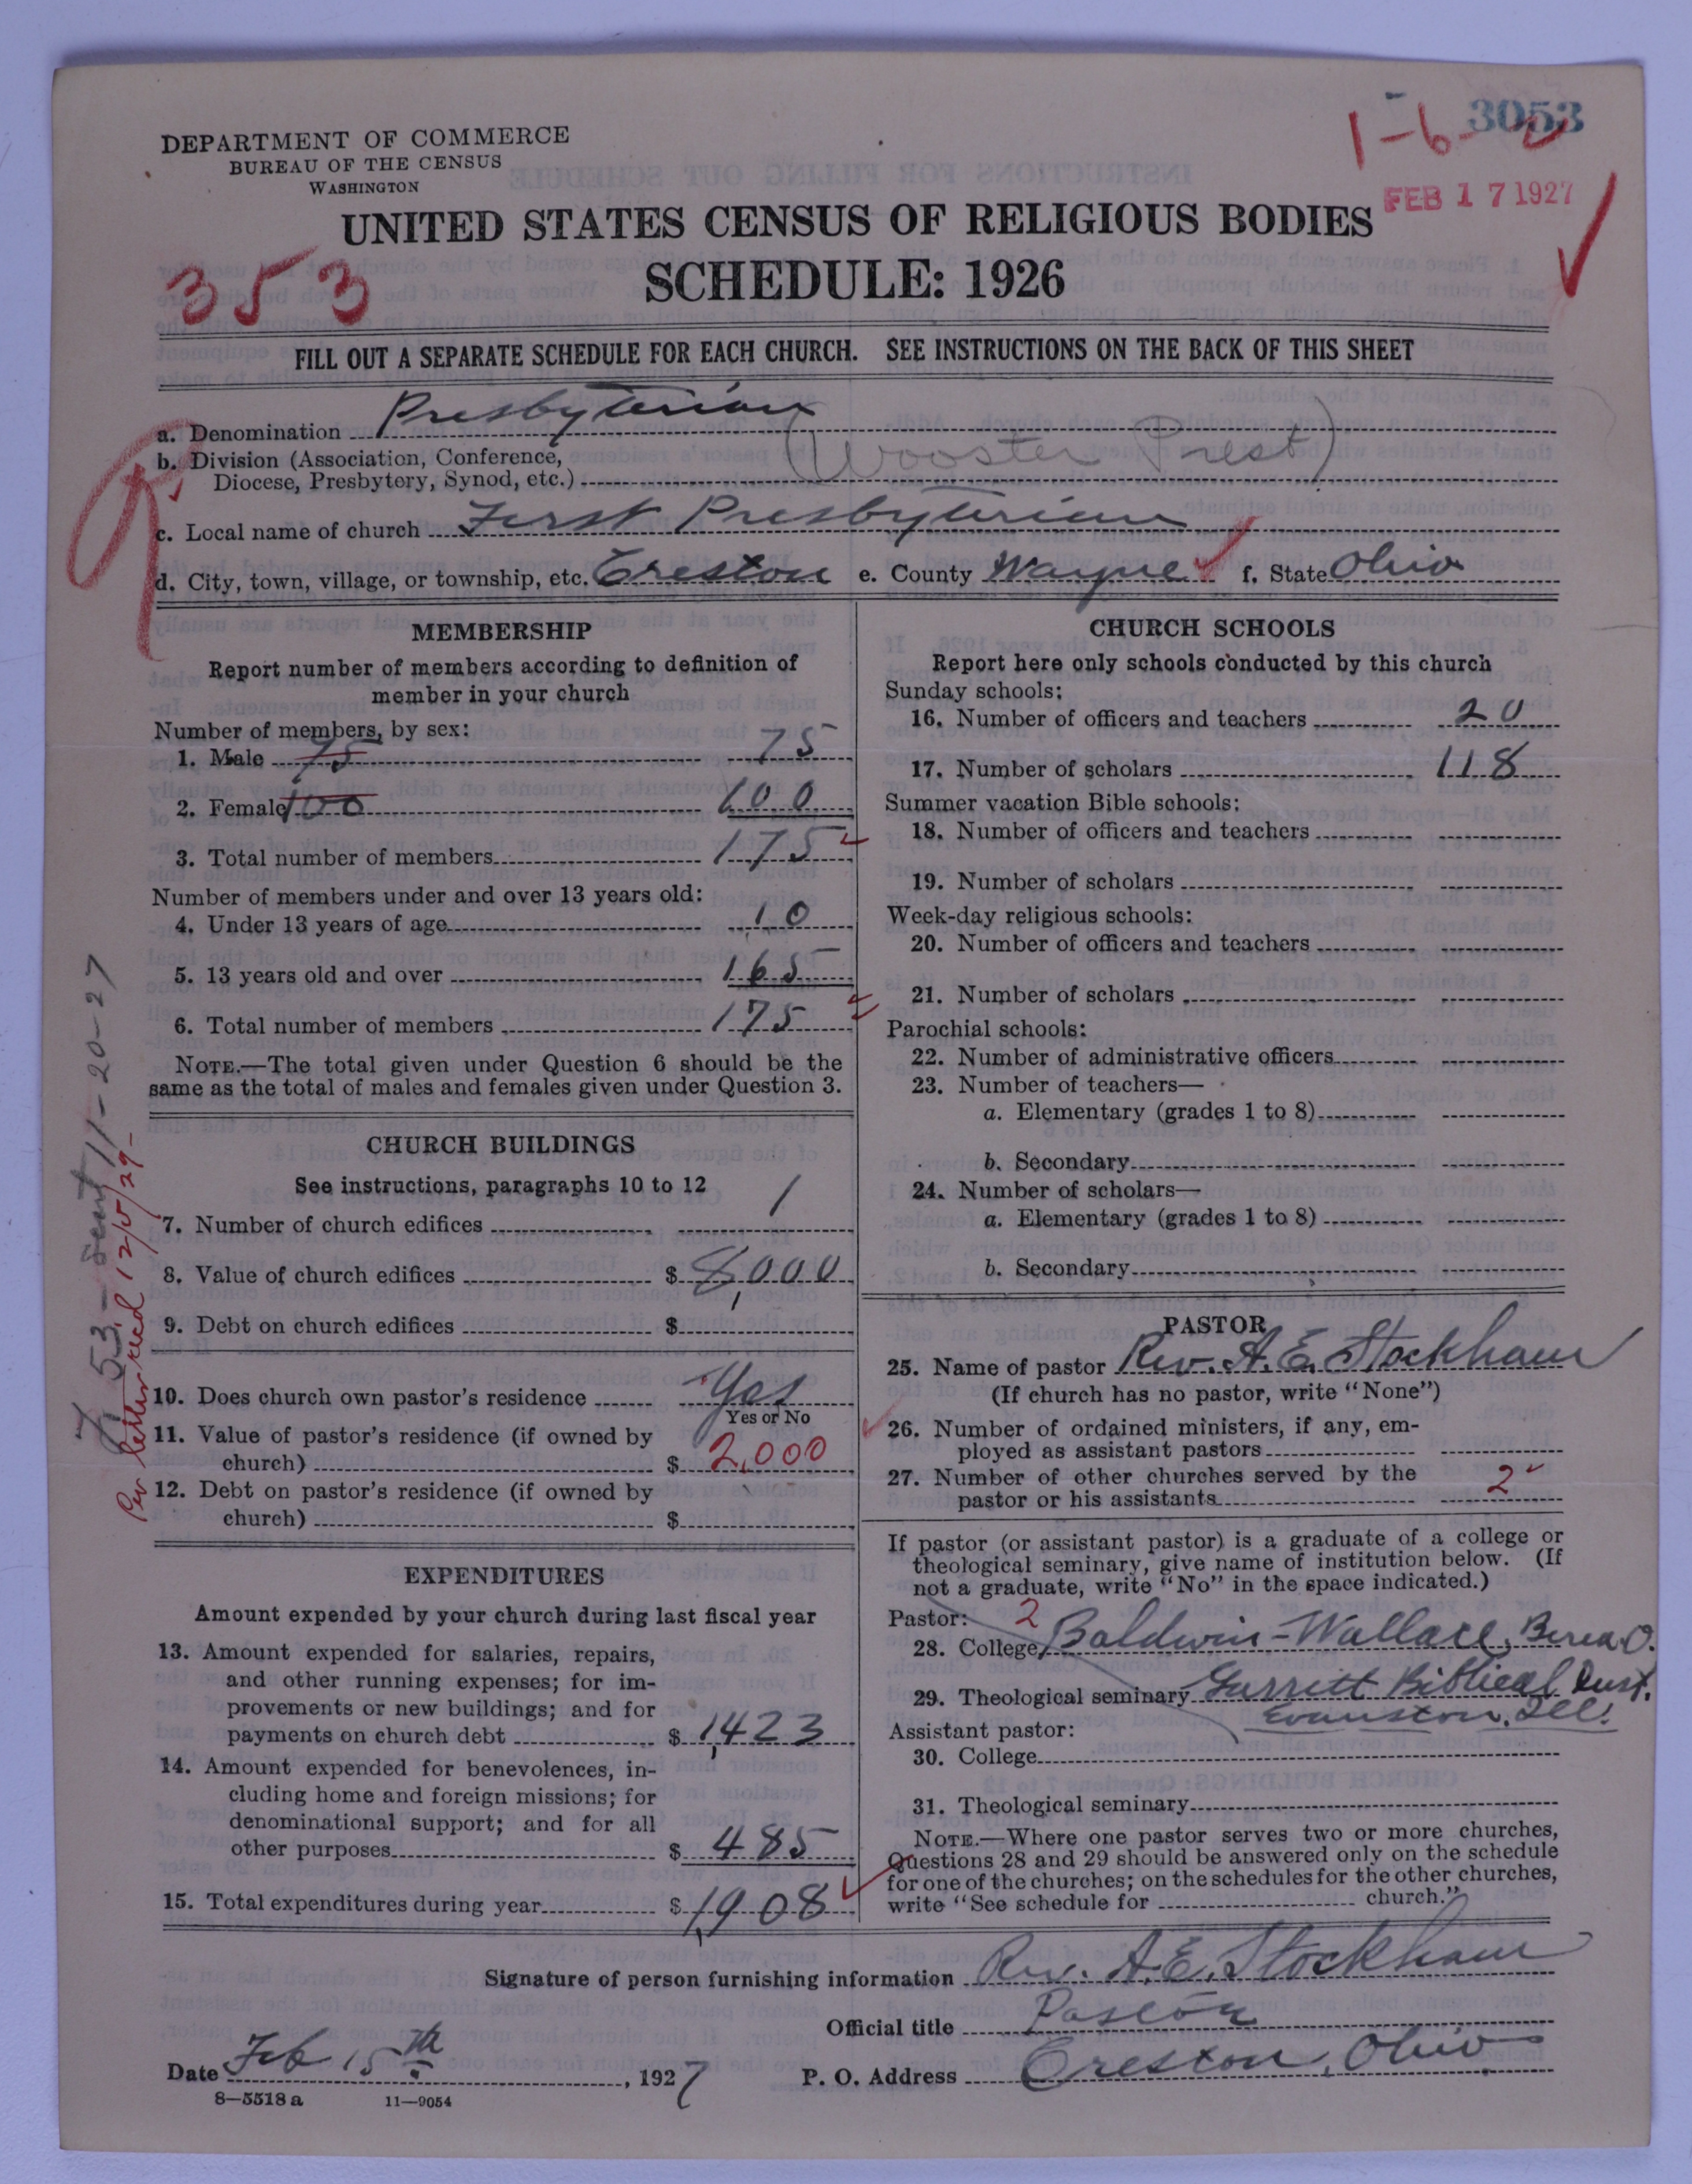 3053
1-6-2
DEPARTMENT OF COMMERCE
BUREAU OF THE CENSUS
WASHINGTON
FEB 17 1927
UNITED STATES CENSUS OF RELIGIOUS BODIES
353
SCHEDULE: 1926
FILL OUT A SEPARATE SCHEDULE FOR EACH CHURCH. SEE INSTRUCTIONS ON THE BACK OF THIS SHEET
a. Denomination Presbyterian
b. Division (Association, Conference, (Wooster Prest)
Diocese, Presbytery, Synod, etc.)
c. Local name of church First Presbyterian
d. City, town, village, or township, etc. Creston e. County Wayne f. State Ohio
MEMBERSHIP
Report number of members according to definition of
member in your church
Number of members, by sex:
1. Male 75 75
2. Female 100 100
3. Total number of members 175
Number of members under and over 13 years old:
4. Under 13 years of age 10
5. 13 years old and over 165
6. Total number of members 175
NOTE.—The total given under Question 6 should be the
same as the total of males and females given under Question 3.
CHURCH BUILDINGS
See instructions, paragraphs 10 to 12
7. Number of church edifices 1
8. Value of church edifices $ 8,000
9. Debt on church edifices $
10. Does church own pastor's residence Yes
Yes or No
11. Value of pastor's residence (if owned by
church) $ 2,000
12. Debt on pastor's residence (if owned by
church) $
EXPENDITURES
Amount expended by your church during last fiscal year
13. Amount expended for salaries, repairs,
and other running expenses; for im-
provements or new buildings; and for
payments on church debt $ 1,423
14. Amount expended for benevolences, in-
cluding home and foreign missions; for
denominational support; and for all
other purposes $ 485
15. Total expenditures during year $ 1,908
53 - Sent 11-20-27
Per letter recd 12/5/27-
CHURCH SCHOOLS
Report here only schools conducted by this church
Sunday schools:
16. Number of officers and teachers 20
17. Number of scholars 118
Summer vacation Bible schools:
18. Number of officers and teachers
19. Number of scholars
Week-day religious schools:
20. Number of officers and teachers
21. Number of scholars
Parochial schools:
22. Number of administrative officers
23. Number of teachers—
a. Elementary (grades 1 to 8)
b. Secondary
24. Number of scholars—
a. Elementary (grades 1 to 8)
b. Secondary
PASTOR
25. Name of pastor Rev. A. E. Stockham
(If church has no pastor, write "None")
26. Number of ordained ministers, if any, em-
ployed as assistant pastors
27. Number of other churches served by the
pastor or his assistants 2
If pastor (or assistant pastor) is a graduate of a college or
theological seminary, give name of institution below. (If
not a graduate, write "No" in the space indicated.)
Pastor: 2
28. College Baldwin-Wallace, Berea. O.
29. Theological seminary Garritt Biblical Inst.
Evanston, Ill.
Assistant pastor:
30. College
31. Theological seminary
NOTE.—Where one pastor serves two or more churches,
Questions 28 and 29 should be answered only on the schedule
for one of the churches; on the schedules for the other churches,
write "See schedule for church."
Signature of person furnishing information Rev. A. E. Stockham
Official title Pastor
Date Feb 15th, 1927 P. O. Address Creston, Ohio
8—5518 a 11—9054